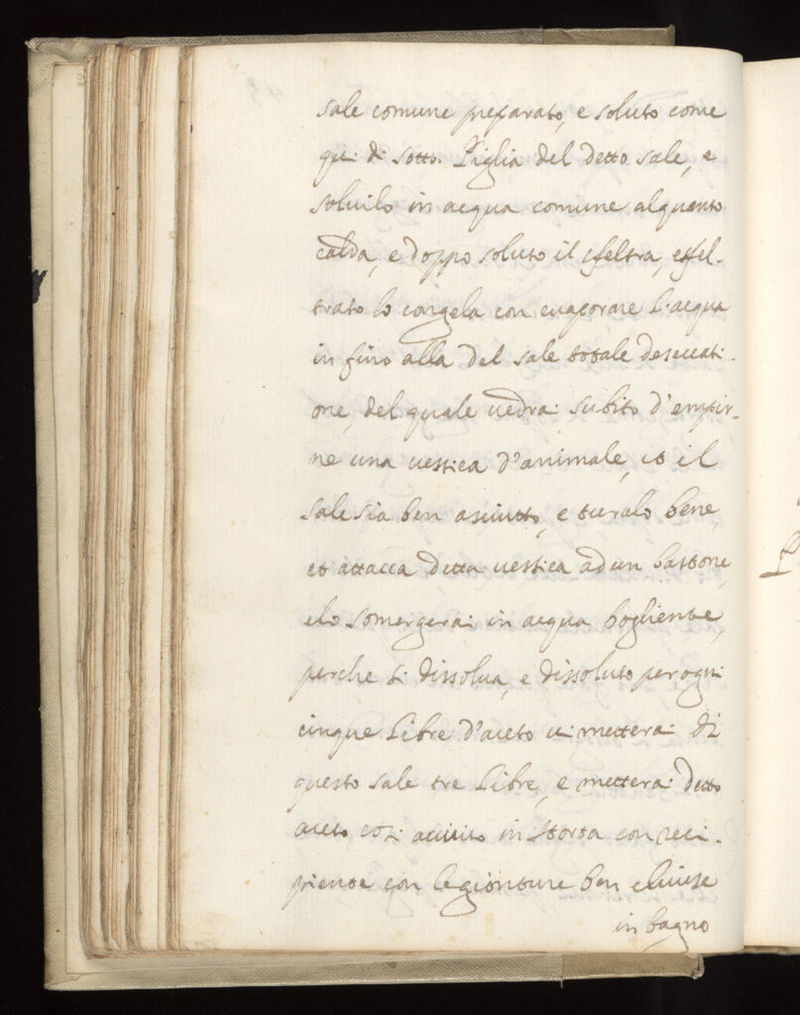 sale comune preparato, e soluto come
qui di sotto. Piglia del detto sale, e
soluilo in acqua comune alquanto
calda, e doppo soluto il sfeltra, e sfel-
trato lo congela con euaporare l'acqua
in fino alla del sale totale deseccati-
one, del quale uedrai subito d'empir-
ne una uessica d'animale, et il
sale sia ben asciutto, e turalo bene,
et attacca detta uessica ad un bastone,
e lo somergerai in acqua bogliente,
perche si dissolua, e dissoluto per ogni
cinque Libre d'aceto ui metterai di
questo sale tre Libre, e metterai detto
aceto così in storta con reci-
piente con le gionture ben chiuse
in bagno